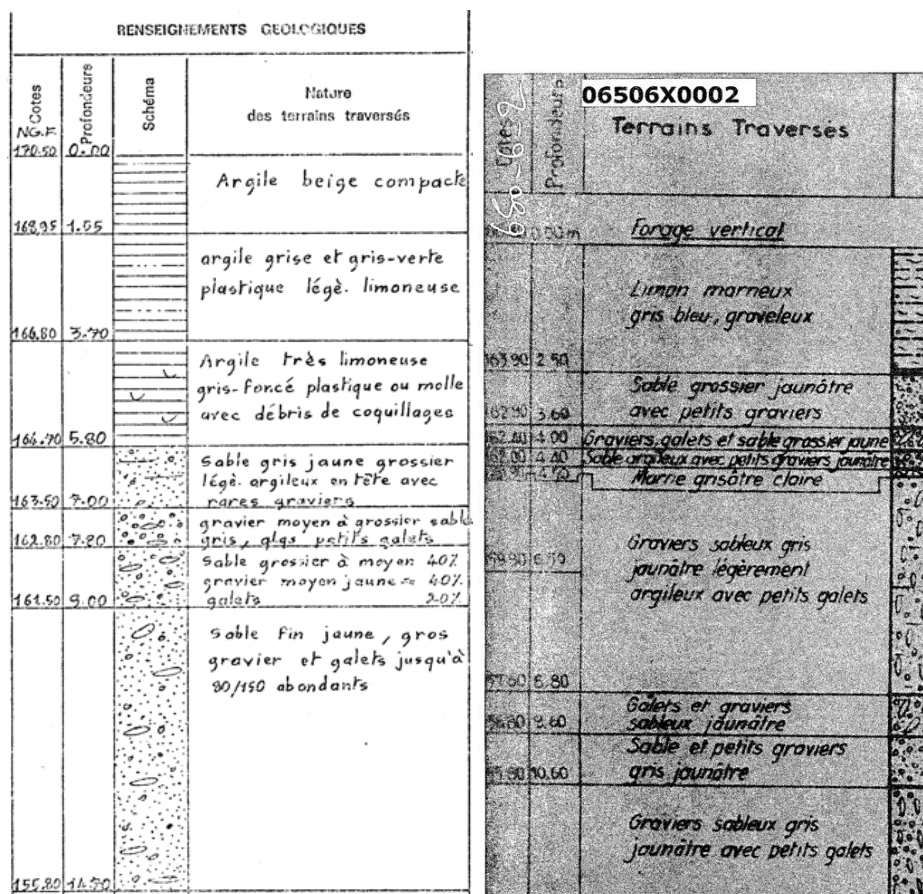 RENSEIGNEMENTS GEOLOGIQUES
Cotes
NG.F.
Profondeurs
Schéma
Nature
des terrains traversés
170.50 0.00
Argile beige compacte
168,95 1.55
argile grise et gris-verte
plastique légè. limoneuse
166.80 3.70
Argile très limoneuse
gris-foncé plastique ou molle
avec débris de coquillages
164.70 5.80
Sable gris jaune grossier
légè. argileux en tête avec
rares graviers
163.50 7.00
gravier moyen à grossier sable
gris, qlqs petits galets
162.80 7.80
Sable grossier à moyen 40%
gravier moyen jaune ≈ 40%
galets 20%
161.50 9.00
Sable fin jaune, gros
gravier et galets jusqu'à
80/150 abondants
155.80 14.70
06506X0002
650-6-2
Cotes
Profondeurs
Terrains Traversés
0.00m Forage vertical
Limon marneux
gris bleu, graveleux
163.90 2.50
Sable grossier jaunâtre
avec petits graviers
162.90 3.60
Graviers, galets et sable grossier jaune
162.40 4.00
Sable argileux avec petits graviers jaunâtre
162.00 4.40
Marne grisâtre claire
Graviers sableux gris
jaunâtre légèrement
argileux avec petits galets
159.90 6.50
157.60 8.80
Galets et graviers
sableux jaunâtre
156.80 9.60
Sable et petits graviers
gris jaunâtre
155.80 10.60
Graviers sableux gris
jaunâtre avec petits galets